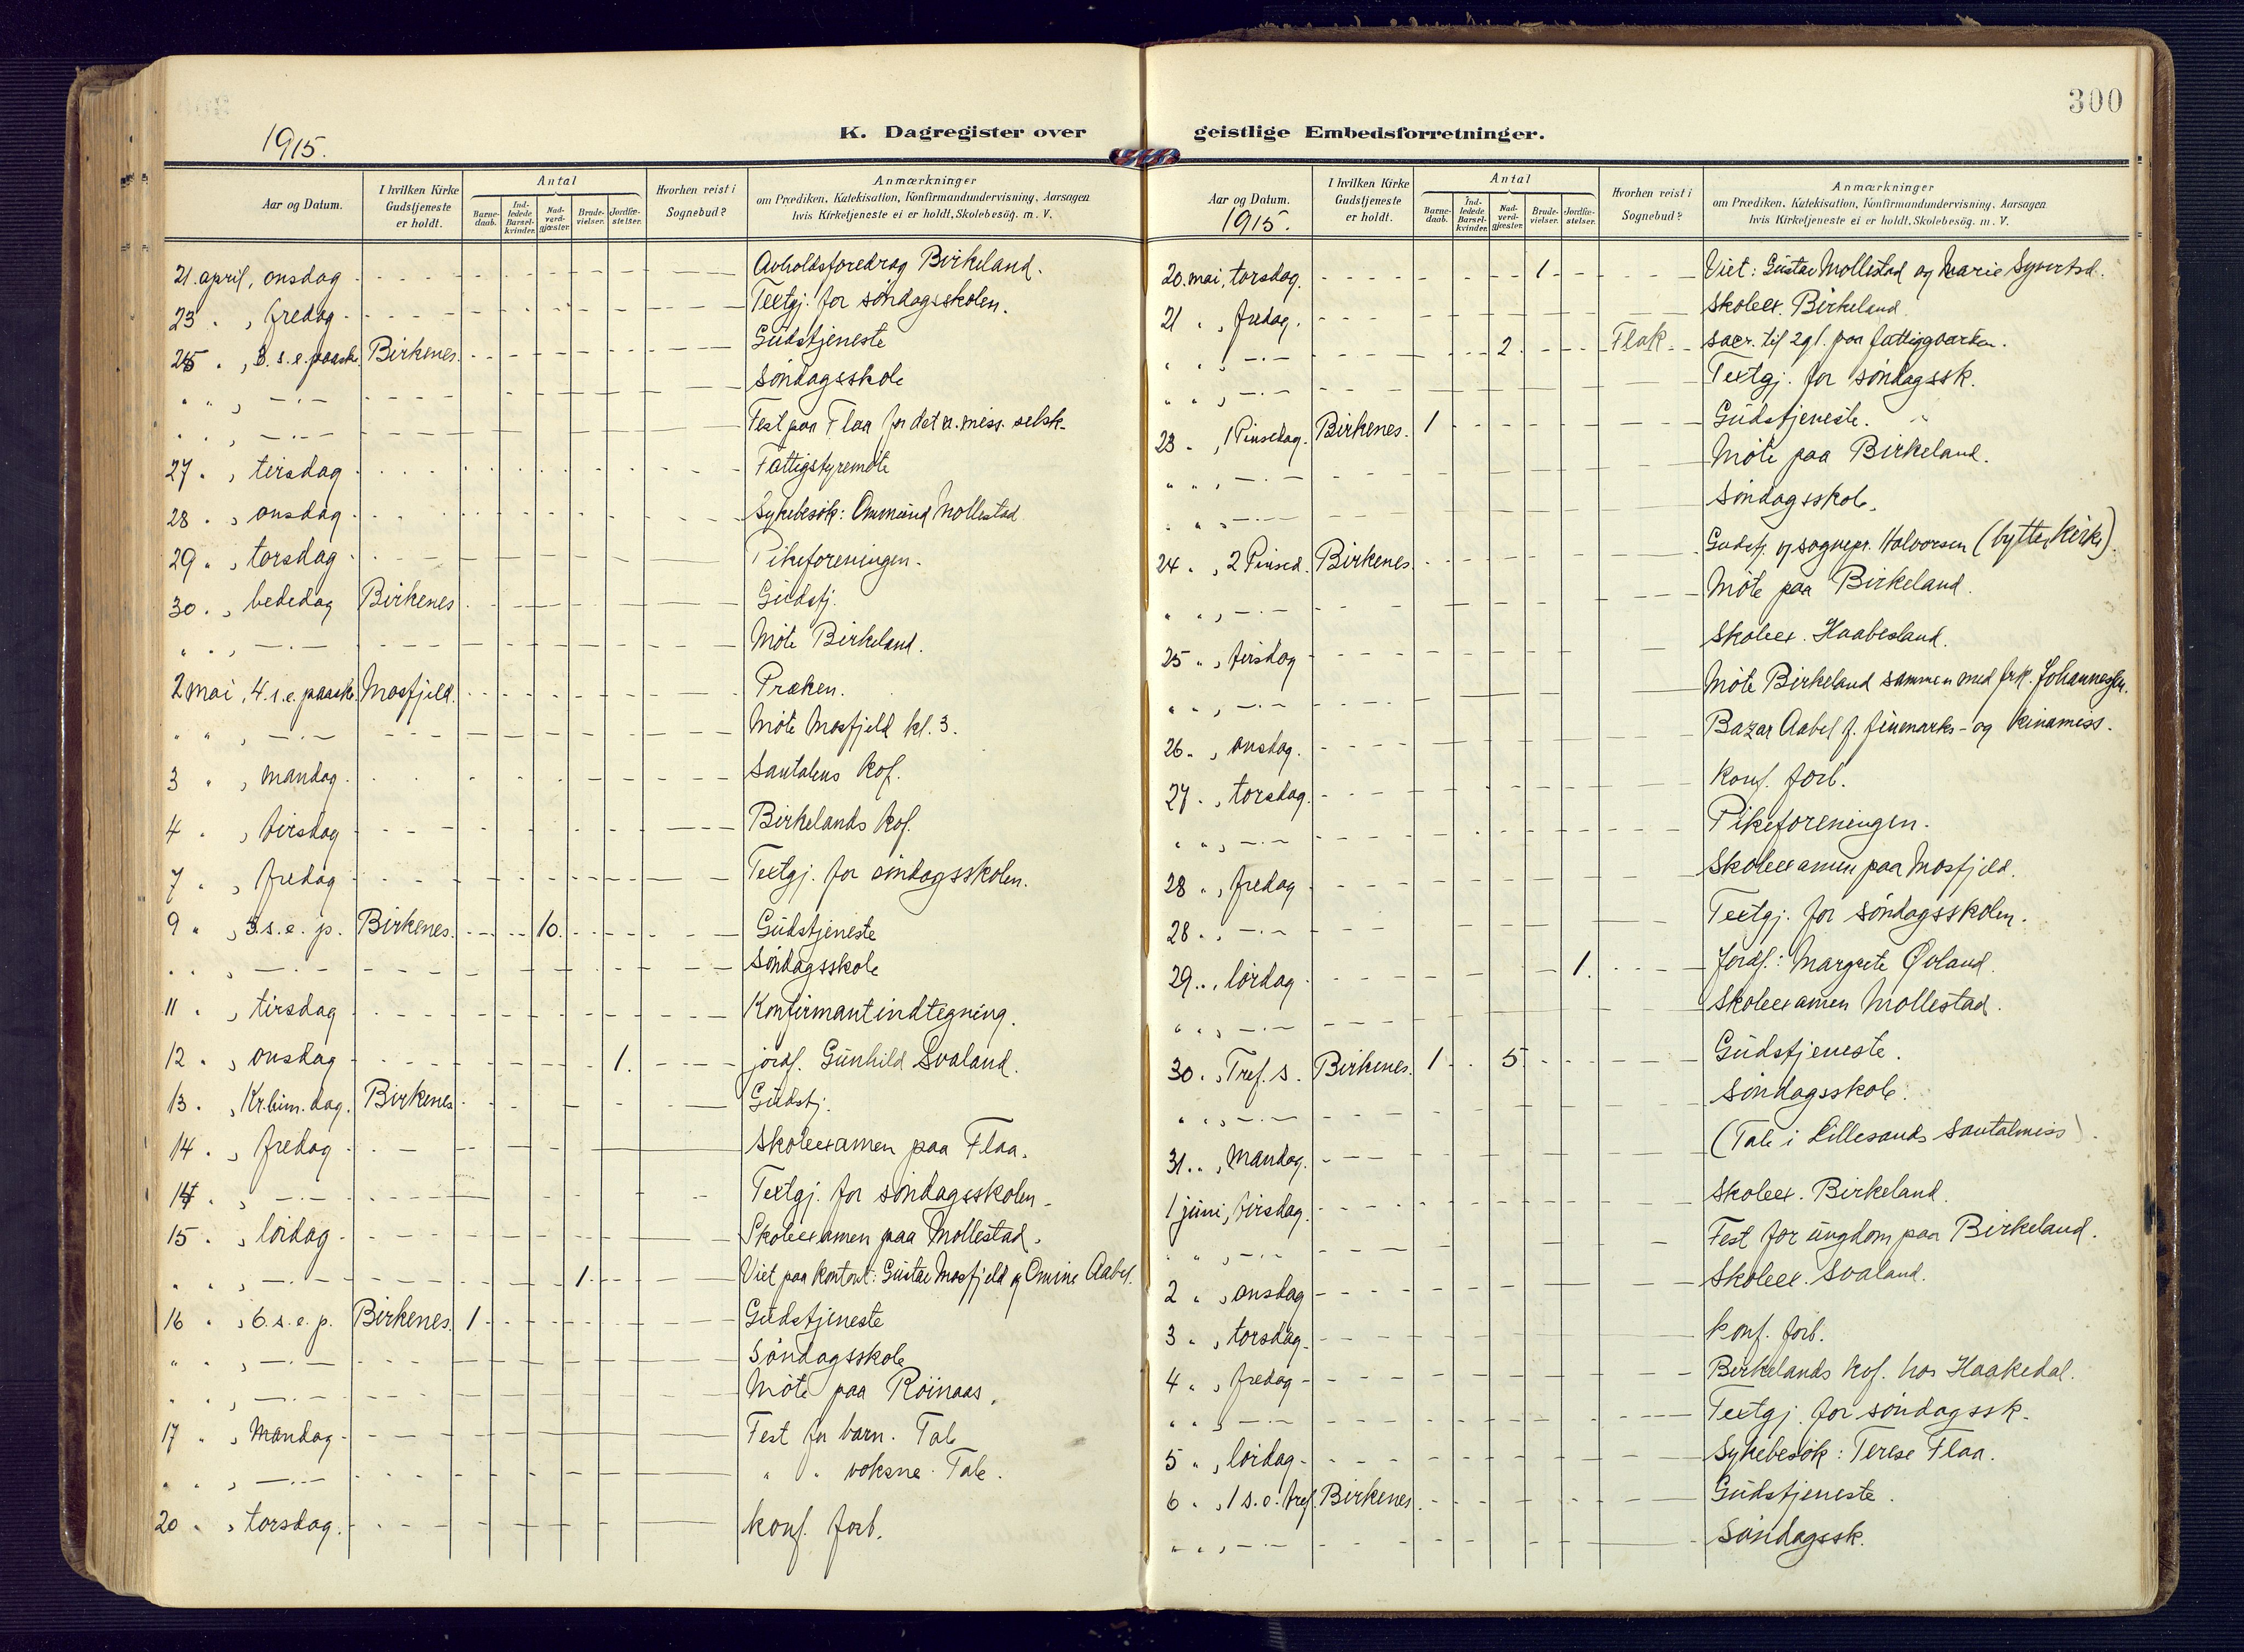 300
1915.
K. Dagregister over
Aar og Datum.
I hvilken Kirke Gudstjeneste er holdt.
Antal
Barne-daab.
Ind-ledede Barsel-kvinder.
Nad-verd-gjæster.
Brude-vielser.
Jordfæ-stelser.
Hvorhen reist i Sognebud?
Anmærkninger
om Prædiken, Katekisation, Konfirmandundervisning, Aarsagen
hvis Kirketjeneste ei er holdt, Skolebesög. m. V.
21. april, onsdag Avholdsforedrag Birkeland.
23 " , fredag Textgj. for söndagsskolen.
25 " , 3. s. e. paaske. Birkenes. Gudstjeneste
" " , —·— Söndagsskole
" " , —·— Fest paa Flaa for det n. miss. selsk.
27 " , tirsdag Fattigstyremöte
28 " , onsdag Sykebesök: Ommund Mollestad
29 " , torsdag Pikeforeningen.
30 " , bededag Birkenes Gudstj.
" " , —·— Möte Birkeland.
2 mai, 4. s. e. paaske. Mosfjeld. Præken.
" " , —·— Möte Mosfjeld kl. 3.
3 " , mandag Santalens kof.
4 " , tirsdag Birkelands kof.
7 " , fredag Textgj. for söndagsskolen.
9 " , 5. s. e. p. Birkenes. 10. Gudstjeneste
" " , —·— Söndagsskole
11 " , tirsdag Konfirmantindtegning.
12 " , onsdag 1. jordf. Gunhild Svaland.
13 " , Kr.him.dag. Birkenes Gudstj.
14 " , fredag Skoleexamen paa Flaa.
14 " , —·— Textgj. for söndagsskolen.
15 " , lördag Skoleexamen paa Mollestad.
" " , —·— 1. Viet paa kontoret: Gustav Mosfjeld og Omine Aabel.
16 " , 6. s. e. p. Birkenes. 1 Gudstjeneste
" " , —·— Söndagsskole
" " , —·— Möte paa Röinaas.
17 " , mandag Fest for barn. Tale
" " , —·— " " voksne. Tale.
20 " , torsdag. konf. forb.
geistlige Embedsforretninger.
Aar og Datum.
1915.
I hvilken Kirke Gudstjeneste er holdt.
Antal
Barne-daab.
Ind-ledede Barsel-kvinder.
Nad-verd-gjæster.
Brude-vielser.
Jordfæ-stelser.
Hvorhen reist i Sognebud?
Anmærkninger
om Prædiken, Katekisation, Konfirmandundervisning, Aarsagen
hvis Kirketjeneste ei er holdt, Skolebesög. m. V.
20. mai, torsdag. 1 Viet: Gustav Mollestad og Marie Syvertsd.
21 " , fredag. Skoleex. Birkeland.
" " , —·— 2 Flak sacr. til 2 gl. paa fattiggaarden.
" " , —·— Textgj. for söndagssk.
23 " , 1 Pinsedag. Birkenes. 1 Gudstjeneste.
" " , —·— Möte paa Birkeland.
" " , —·— Söndagsskole.
24 " , 2 Pinsed. Birkenes. Gudstj. v/ sognepr. Halvorsen (bytte, kirke)
" " , —·— Möte paa Birkeland.
25 " , tirsdag Skoleex. Haabesland.
" " , —·— Möte Birkeland sammen med frk. Johannessen.
26 " , onsdag. Bazar Aabel f. finmarks- og kinamiss.
27 " , torsdag. konf. forb.
" " , —·— Pikeforeningen.
28 " , fredag Skoleexamen paa Mosfjeld.
28 " , —·— Textgj. for söndagsskolen.
29 " , lördag 1. Jordf.: Margrete Øvland.
" " , —·— Skoleexamen Mollestad.
30 " , Tref. s. Birkenes. 1 5 Gudstjeneste.
" " , —·— Söndagsskole.
31 " , mandag. (Tale i Lillesands Santalmiss).
1 juni, tirsdag. Skoleex. Birkeland.
" " , —·— Fest for ungdom paa Birkeland.
2 " , onsdag Skoleex. Svaland.
3 " , torsdag konf. forb.
4 " , fredag Birkelands kof. hos Haakedal.
" " , —·— Textgj. for söndagssk.
5 " , lördag Sykebesök: Terese Flaa.
6 " , 1 s. e. tref. Birkenes. Gudstjeneste.
" " , —·— Söndagssk.